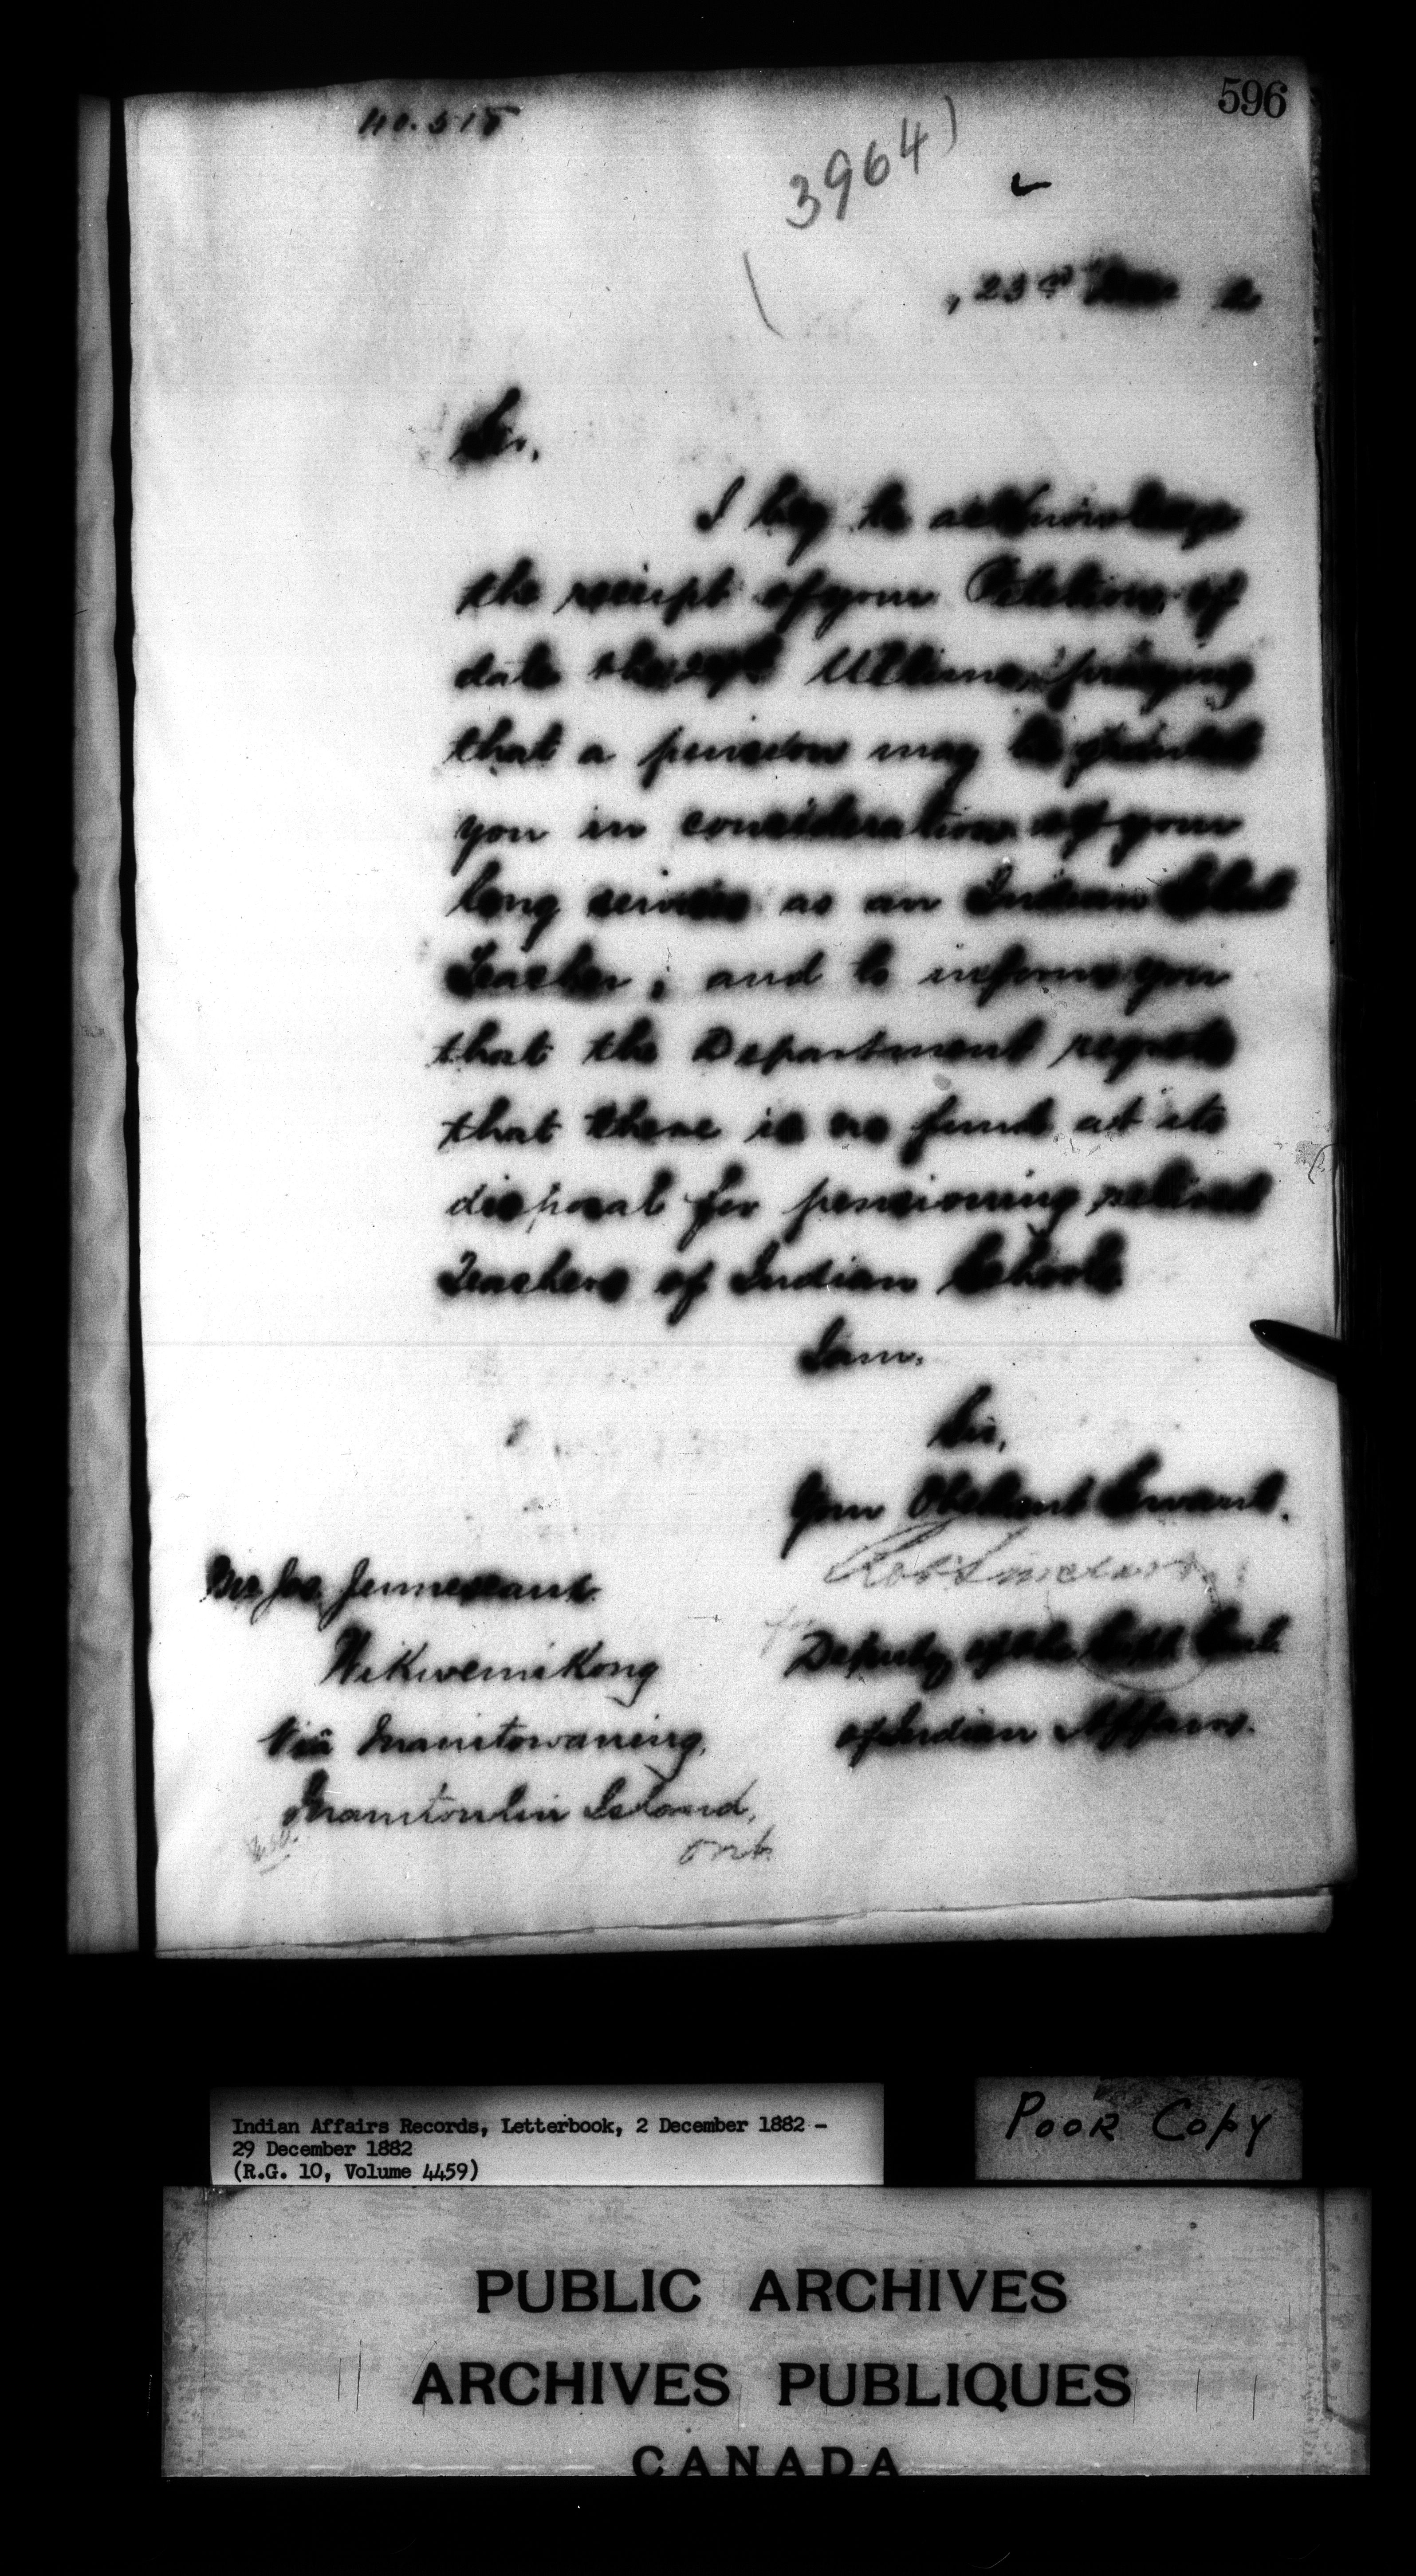 596
No. 515
3964
, 23rd Dec 2
Sir,
I beg to acknowledge
the receipt of your Petition of
date the Ultimo, praying
that a pension may be granted
you in consideration of your
long service as an Indian School
Teacher; and to inform you
that the Department regrets
that there is no fund at its
disposal for pensioning retired
Teachers of Indian Schools.
I am,
Sir,
Your Obedient Servant.
Robt Sinclair
for
Deputy of the Supt Genl
of Indian Affairs.
Mr Jos. Jennesseaux
Wikwemikong
Via Manitowaning,
Manitoulin Island,
Ont.
Indian Affairs Records, Letterbook, 2 December 1882 -
29 December 1882
(R.G. 10, Volume 4459)
POOR COPY
PUBLIC ARCHIVES
ARCHIVES PUBLIQUES
CANADA